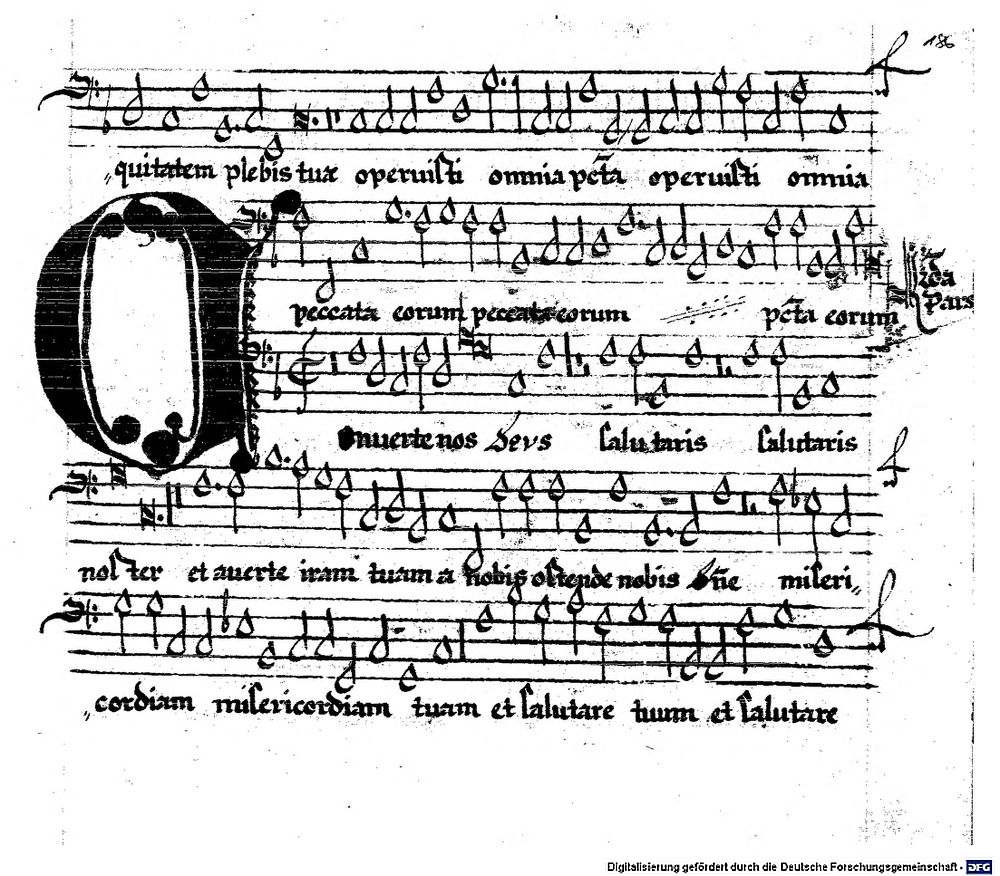 186
quitatem plebis tuæ operuisti omnia pctã operuisti omnia
peccata eorum peccata eorum pctã eorum
2da
Pars
Onuerte nos Deus salutaris salutaris
noster et auerte iram tuam a nobis ostende nobis dñe miseri„
„cordiam misericordiam tuam et salutare tuum et salutare
Digitalisierung gefördert durch die Deutsche Forschungsgemeinschaft - DFG